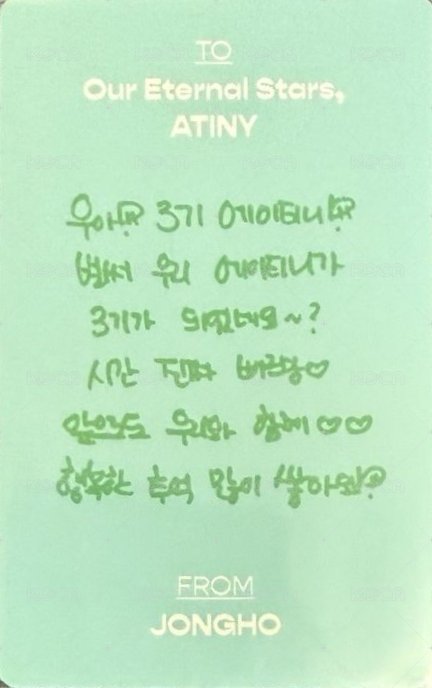 TO
Our Eternal Stars,
ATINY
우아!! 3기 에이티니!!
벌써 우리 에이티니가
3기가 되었네요~?
시간 진짜 빠르당♡
앞으로도 우리와 함께♡♡
행복한 추억 많이 쌓아요!?
FROM
JONGHO